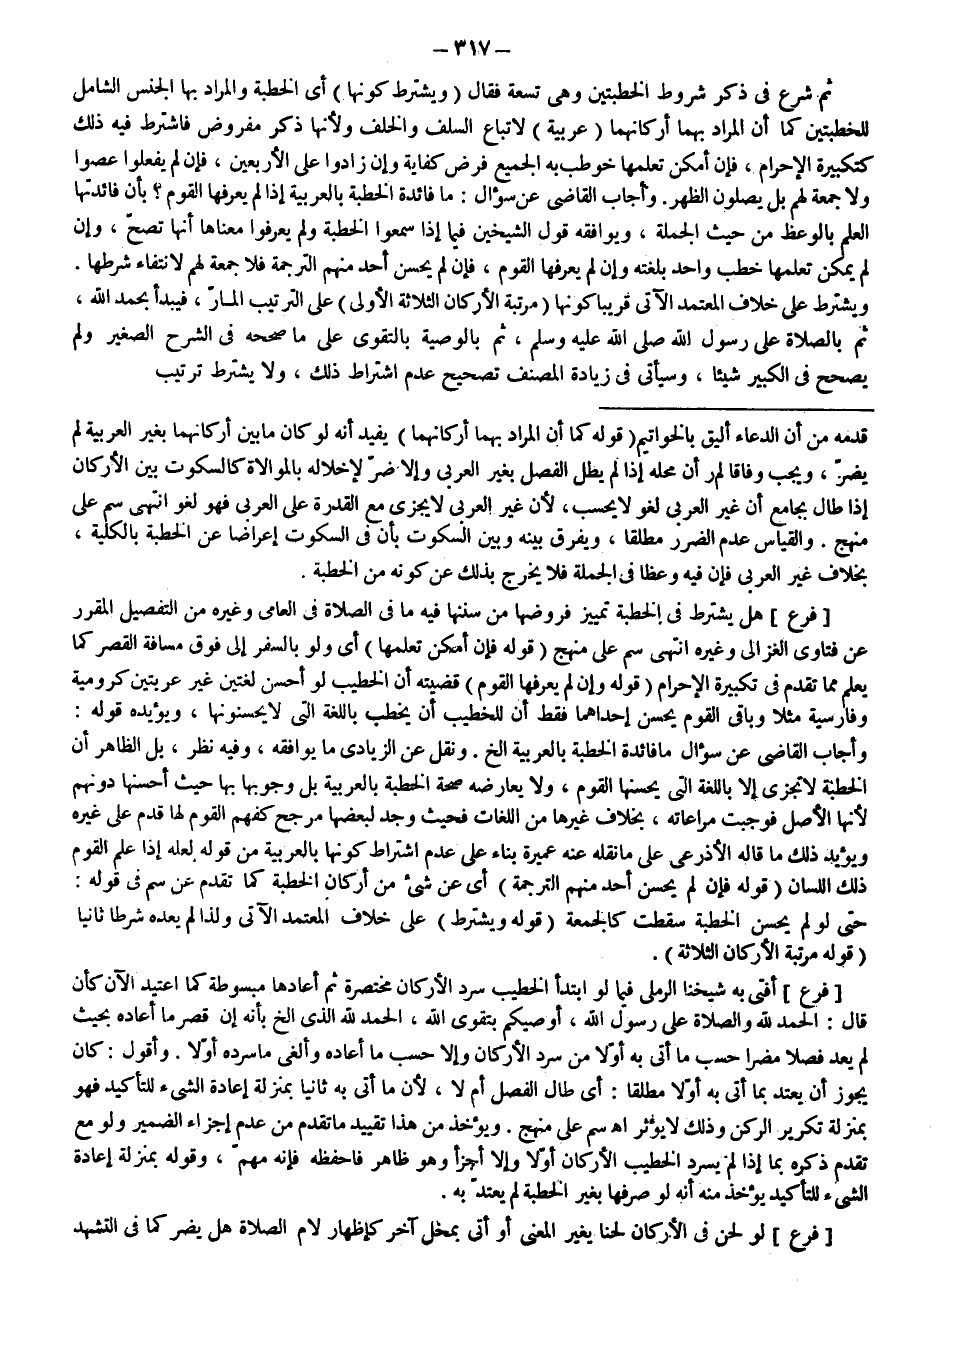 — ٣١٧ —
ثم شرع فى ذكر شروط الخطبتين وهى تسعة فقال ( ويشترط كونها ) أى الخطبة والمراد بها الجنس الشامل
للخطبتين كما أن المراد بهما أركانهما ( عربية ) لاتباع السلف والخلف ولأنها ذكر مفروض فاشترط فيه ذلك
كتكبيرة الإحرام ، فإن أمكن تعلمها خوطب به الجميع فرض كفاية وإن زادوا على الأربعين ، فإن لم يفعلوا عصوا
ولا جمعة لهم بل يصلون الظهر . وأجاب القاضى عن سؤال : ما فائدة الخطبة بالعربية إذا لم يعرفها القوم ؟ بأن فائدتها
العلم بالوعظ من حيث الجملة ، ويوافقه قول الشيخين فيما إذا سمعوا الخطبة ولم يعرفوا معناها أنها تصحّ ، وإن
لم يمكن تعلمها خطب واحد بلغته وإن لم يعرفها القوم ، فإن لم يحسن أحد منهم الترجمة فلا جمعة لهم لانتفاء شرطها .
ويشترط على خلاف المعتمد الآتى قريبا كونها ( مرتبة الأركان الثلاثة الأولى ) على الترتيب المارّ ، فيبدأ بحمد الله ،
ثم بالصلاة على رسول الله صلى الله عليه وسلم ، ثم بالوصية بالتقوى على ما صححه فى الشرح الصغير ولم
يصحح فى الكبير شيئا ، وسيأتى فى زيادة المصنف تصحيح عدم اشتراط ذلك ، ولا يشترط ترتيب
قدمه من أن الدعاء أليق بالخواتيم ( قوله كما أن المراد بهما أركانهما ) يفيد أنه لو كان مابين أركانهما بغير العربية لم
يضرّ ، ويجب وفاقا لمر أن محله إذا لم يطل الفصل بغير العربى وإلا ضرّ لإخلاله بالموالاة كالسكوت بين الأركان
إذا طال بجامع أن غير العربى لغو لايحسب ، لأن غير العربى لايجزى مع القدرة على العربى فهو لغو انتهى سم على
منهج . والقياس عدم الضرر مطلقا ، ويفرق بينه وبين السكوت بأن فى السكوت إعراضا عن الخطبة بالكلية ،
بخلاف غير العربى فإن فيه وعظا فى الجملة فلا يخرج بذلك عن كونه من الخطبة .
[ فرع ] هل يشترط فى الخطبة تمييز فروضها من سننها فيه ما فى الصلاة فى العامى وغيره من التفصيل المقرر
عن فتاوى الغزالى وغيره انتهى سم على منهج ( قوله فإن أمكن تعلمها ) أى ولو بالسفر إلى فوق مسافة القصر كما
يعلم مما تقدم فى تكبيرة الإحرام ( قوله وإن لم يعرفها القوم ) قضيته أن الخطيب لو أحسن لغتين غير عربيتين كرومية
وفارسية مثلا وباقى القوم يحسن إحداهما فقط أن للخطيب أن يخطب باللغة التى لايحسنونها ، ويؤيده قوله :
وأجاب القاضى عن سؤال مافائدة الخطبة بالعربية الخ . ونقل عن الزيادى ما يوافقه ، وفيه نظر ، بل الظاهر أن
الخطبة لاتجزى إلا باللغة التى يحسنها القوم ، ولا يعارضه صحة الخطبة بالعربية بل وجوبها بها حيث أحسنها دونهم
لأنها الأصل فوجبت مراعاته ، بخلاف غيرها من اللغات فحيث وجد لبعضها مرجح كفهم القوم لها قدم على غيره
ويؤيد ذلك ما قاله الأذرعى على مانقله عنه عميرة بناء على عدم اشتراط كونها بالعربية من قوله لعله إذا علم القوم
ذلك اللسان ( قوله فإن لم يحسن أحد منهم الترجمة ) أى عن شئ من أركان الخطبة كما تقدم عن سم فى قوله :
حتى لو لم يحسن الخطبة سقطت كالجمعة ( قوله ويشترط ) على خلاف المعتمد الآتى ولذا لم يعده شرطا ثانيا
( قوله مرتبة الأركان الثلاثة ) .
[ فرع ] أفتى به شيخنا الرملى فيما لو ابتدأ الخطيب سرد الأركان مختصرة ثم أعادها مبسوطة كما اعتيد الآن كأن
قال : الحمد لله والصلاة على رسول الله ، أوصيكم بتقوى الله ، الحمد لله الذى الخ بأنه إن قصر ما أعاده بحيث
لم يعد فصلا مضرا حسب ما أتى به أوّلا من سرد الأركان وإلا حسب ما أعاده وألغى ماسرده أوّلا . وأقول : كان
يجوز أن يعتد بما أتى به أوّلا مطلقا : أى طال الفصل أم لا ، لأن ما أتى به ثانيا بمنزلة إعادة الشىء للتأكيد فهو
بمنزلة تكرير الركن وذلك لايؤثر اه سم على منهج . ويؤخذ من هذا تقييد ماتقدم من عدم إجزاء الضمير ولو مع
تقدم ذكره بما إذا لم يسرد الخطيب الأركان أوّلا وإلا أجزأ وهو ظاهر فاحفظه فإنه مهمّ ، وقوله بمنزلة إعادة
الشىء للتأكيد يؤخذ منه أنه لو صرفها بغير الخطبة لم يعتدّ به .
[ فرع ] لو لحن فى الأركان لحنا يغير المعنى أو أتى بمخل آخر كإظهار لام الصلاة هل يضر كما فى التشهد